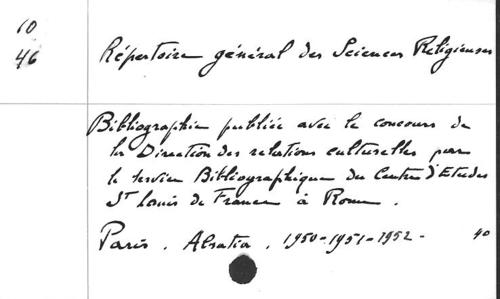 10
46
Répertoire général des Sciences Religieuses
Bibliographie publiée avec le concours de
la Direction des relations culturelles par
le service Bibliographique du Centre d'Etudes
St Louis de France à Rome.
Paris. Alsatia. 1950-1951-1952- 40